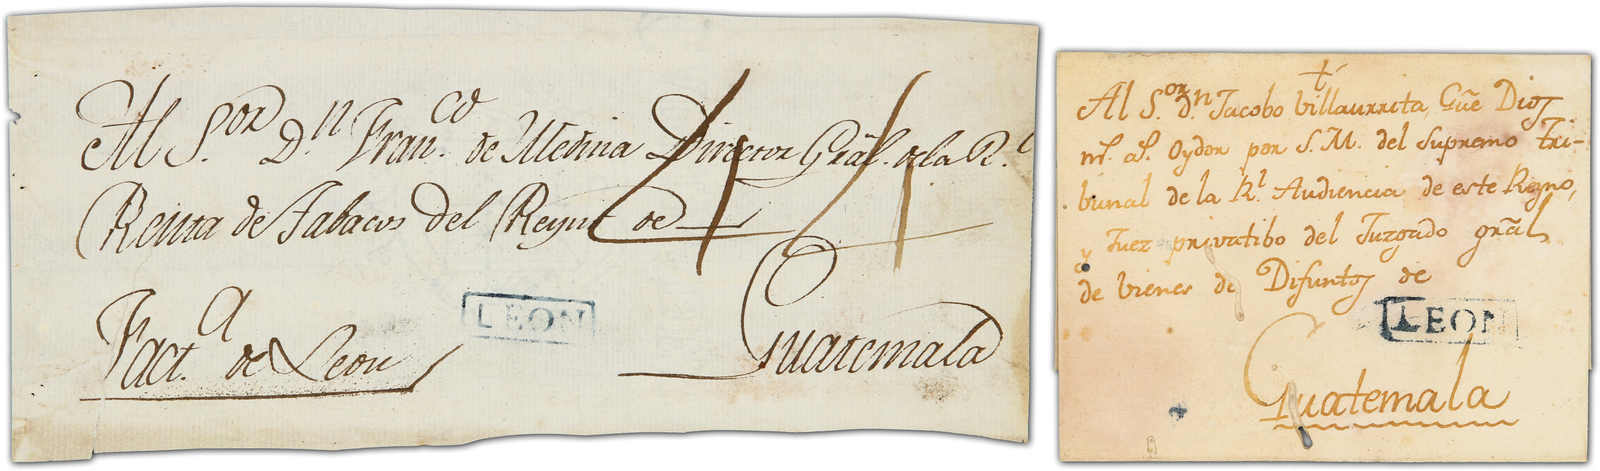 Al S.or D.n Fran.co de Medina Director Gral. de la R.l
Renta de Tabacos del Reyno de
Guatemala
Fact.a de Leon
LEON
Al S.or d.n Jacobo Villaurrita, Güe Dios
m.s a.s Oydor por S. M. del Supremo Tri-
bunal de la R.l Audiencia de este Reyno,
y Juez privatibo del Juzgado grāl
de bienes de Difuntos de
LEON
Guatemala